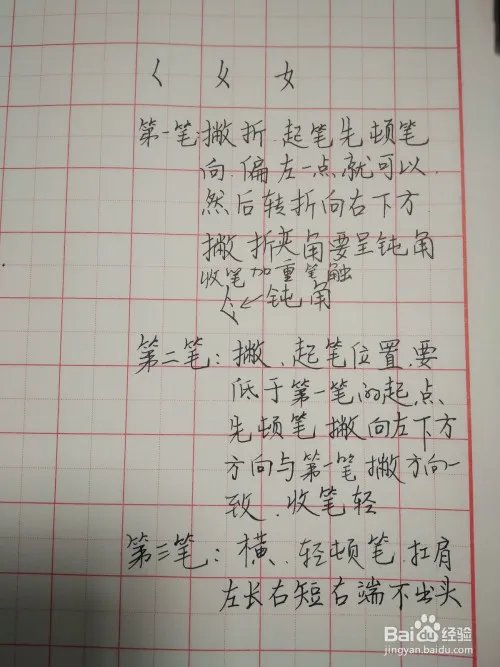 く 夂 女
第一笔:撇折.起笔先顿笔
向.偏左一点就可以.
然后转折向右下方
撇折夹角要呈钝角
收笔加重笔触
く←钝角
第二笔:撇、起笔位置.要
低于第一笔的起点、
先顿笔撇向左下方
方向与第一笔撇方向一
致.收笔轻
第三笔:横、轻顿笔.扛肩
左长右短右端不出头
Baidu经验
jingyan.baidu.com